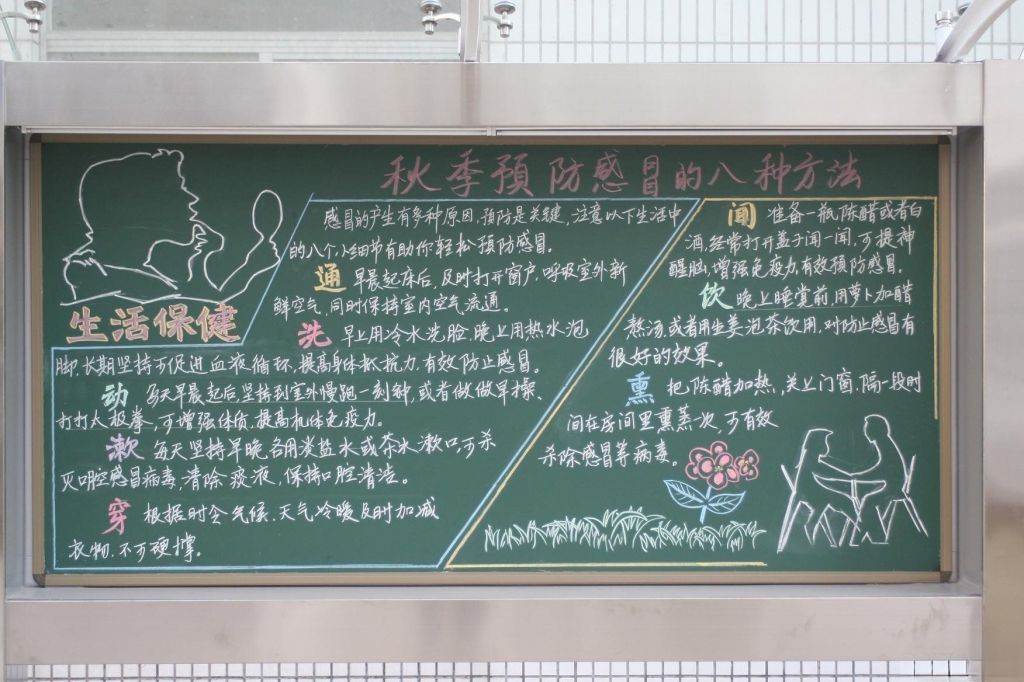 秋季预防感冒的八种方法
生活保健
感冒的产生有多种原因,预防是关键,注意以下生活中
的八个小细节有助你轻松预防感冒。
通 早晨起床后,及时打开窗户,呼吸室外新
鲜空气,同时保持室内空气流通。
洗 早上用冷水洗脸,晚上用热水泡
脚,长期坚持可促进血液循环,提高身体抵抗力,有效防止感冒。
动 每天早晨起后坚持到室外慢跑一刻钟,或者做做早操、
打打太极拳,可增强体质,提高机体免疫力。
漱 每天坚持早晚各用淡盐水或茶水漱口,可杀
灭口腔感冒病毒,清除痰液,保持口腔清洁。
穿 根据时令气候、天气冷暖及时加减
衣物,不可硬撑。
闻 准备一瓶陈醋或者白
酒,经常打开盖子闻一闻,可提神
醒脑,增强免疫力,有效预防感冒。
饮 晚上睡觉前,用萝卜加醋
熬汤,或者用生姜泡茶饮用,对防止感冒有
很好的效果。
熏 把陈醋加热,关上门窗,隔一段时
间在房间里熏蒸一次,可有效
杀除感冒等病毒。